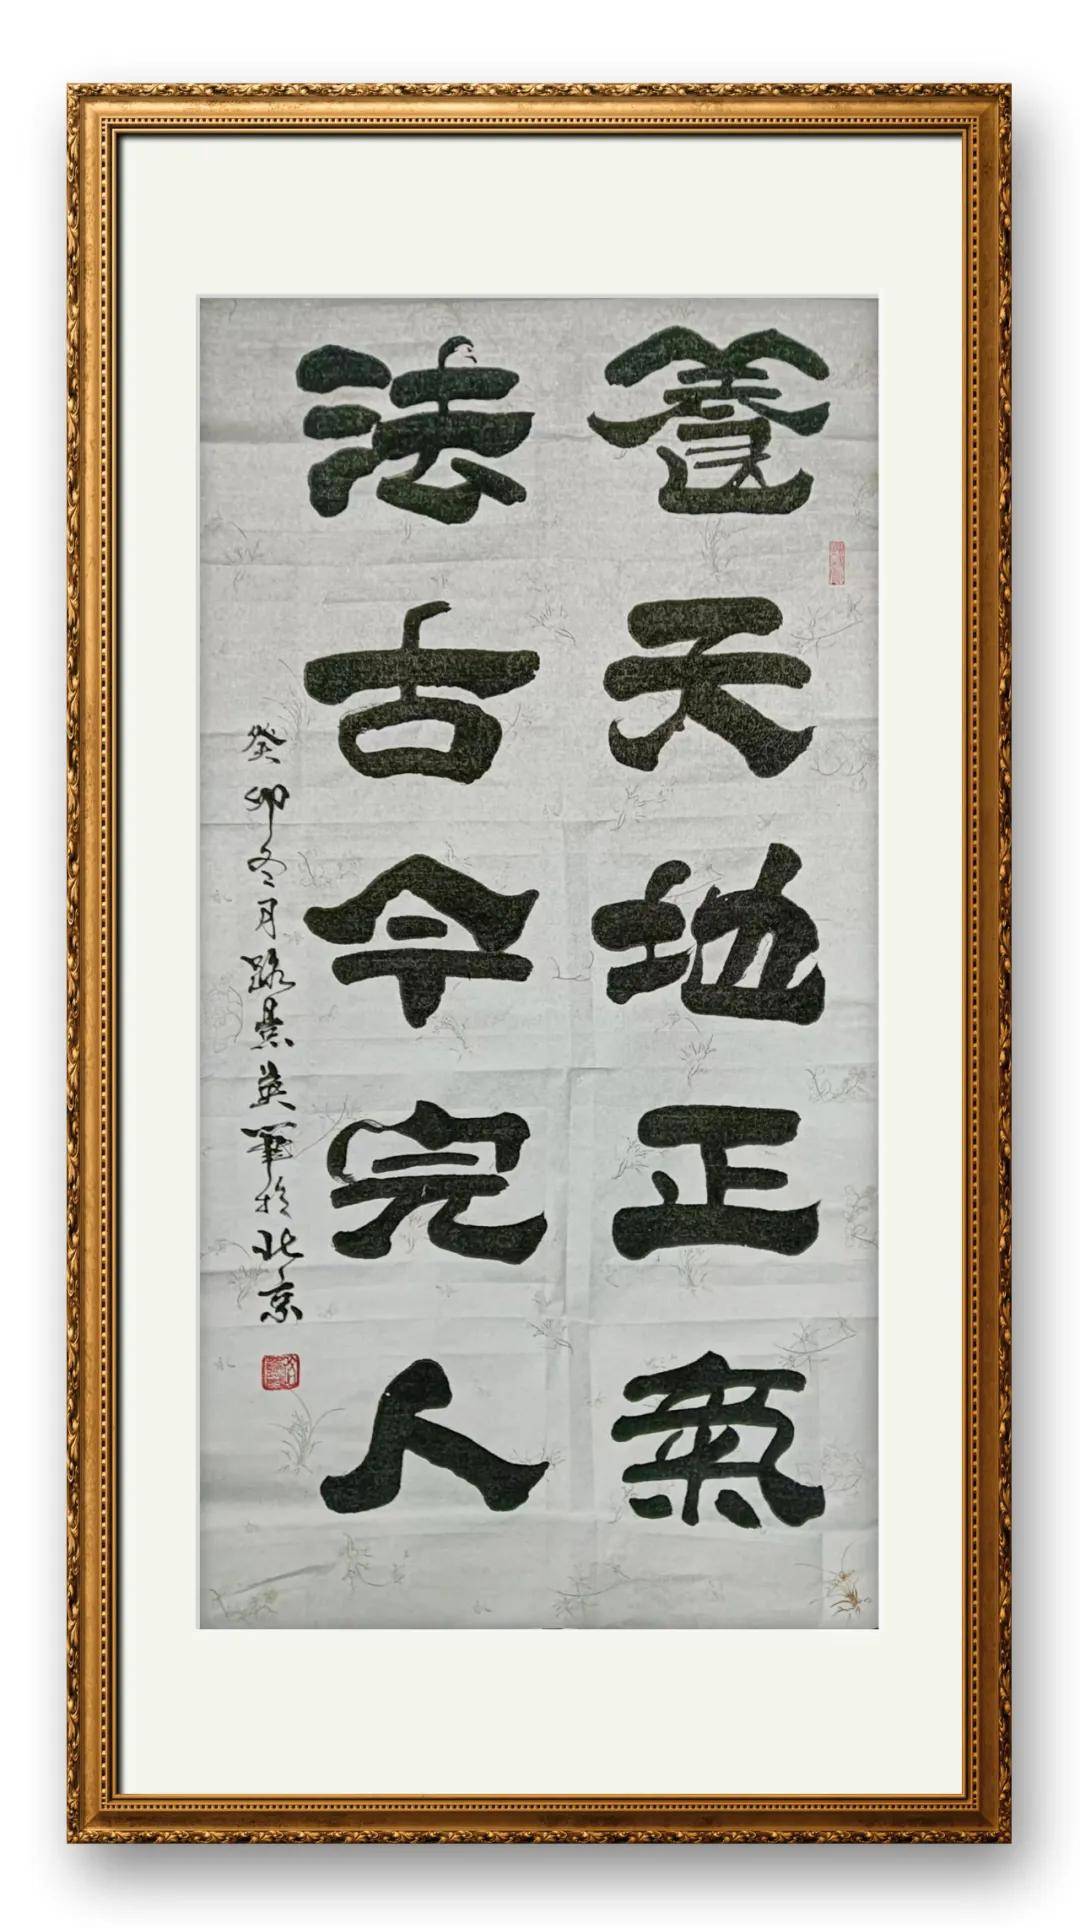 養天地正氣
法古今完人
癸卯冬月路景英筆於北京